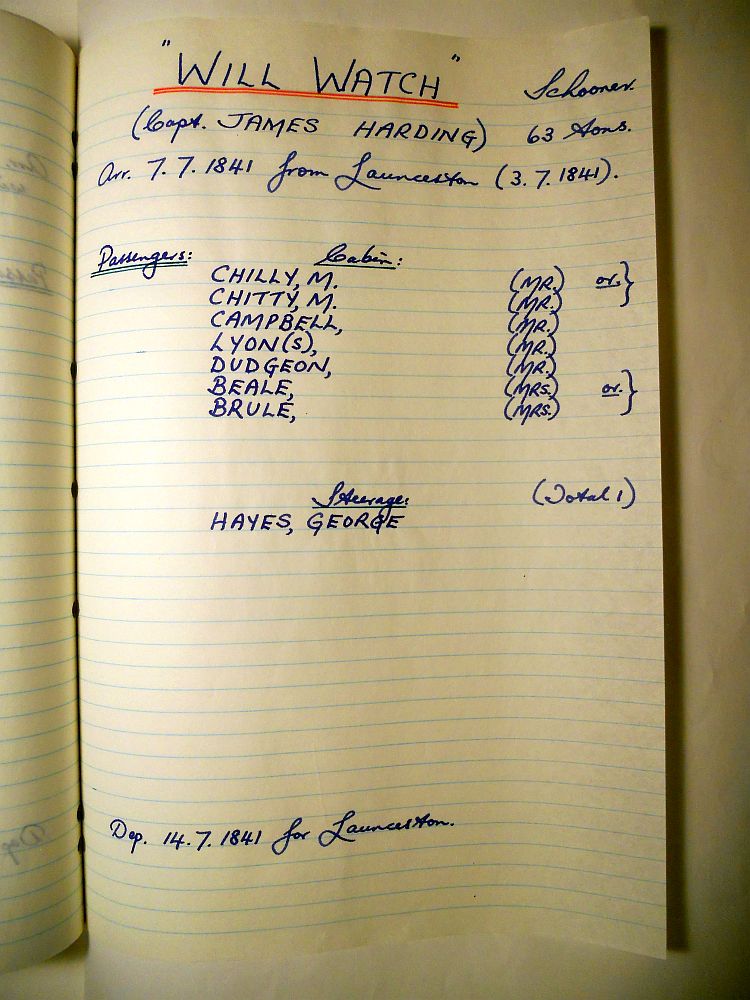 "WILL WATCH" Schooner.
(Capt. JAMES HARDING) 63 Tons.
Arr. 7.7.1841 from Launceston (3.7.1841).
Passengers: Cabin:
CHILLY, M. (MR.) or.}
CHITTY, M. (MR.)
CAMPBELL, (MR.)
LYON(S), (MR.)
DUDGEON, (MR.)
BEALE, (MRS.) or.}
BRULÉ, (MRS.)
Steerage: (Total 1)
HAYES, GEORGE
Dep. 14.7.1841 for Launceston.